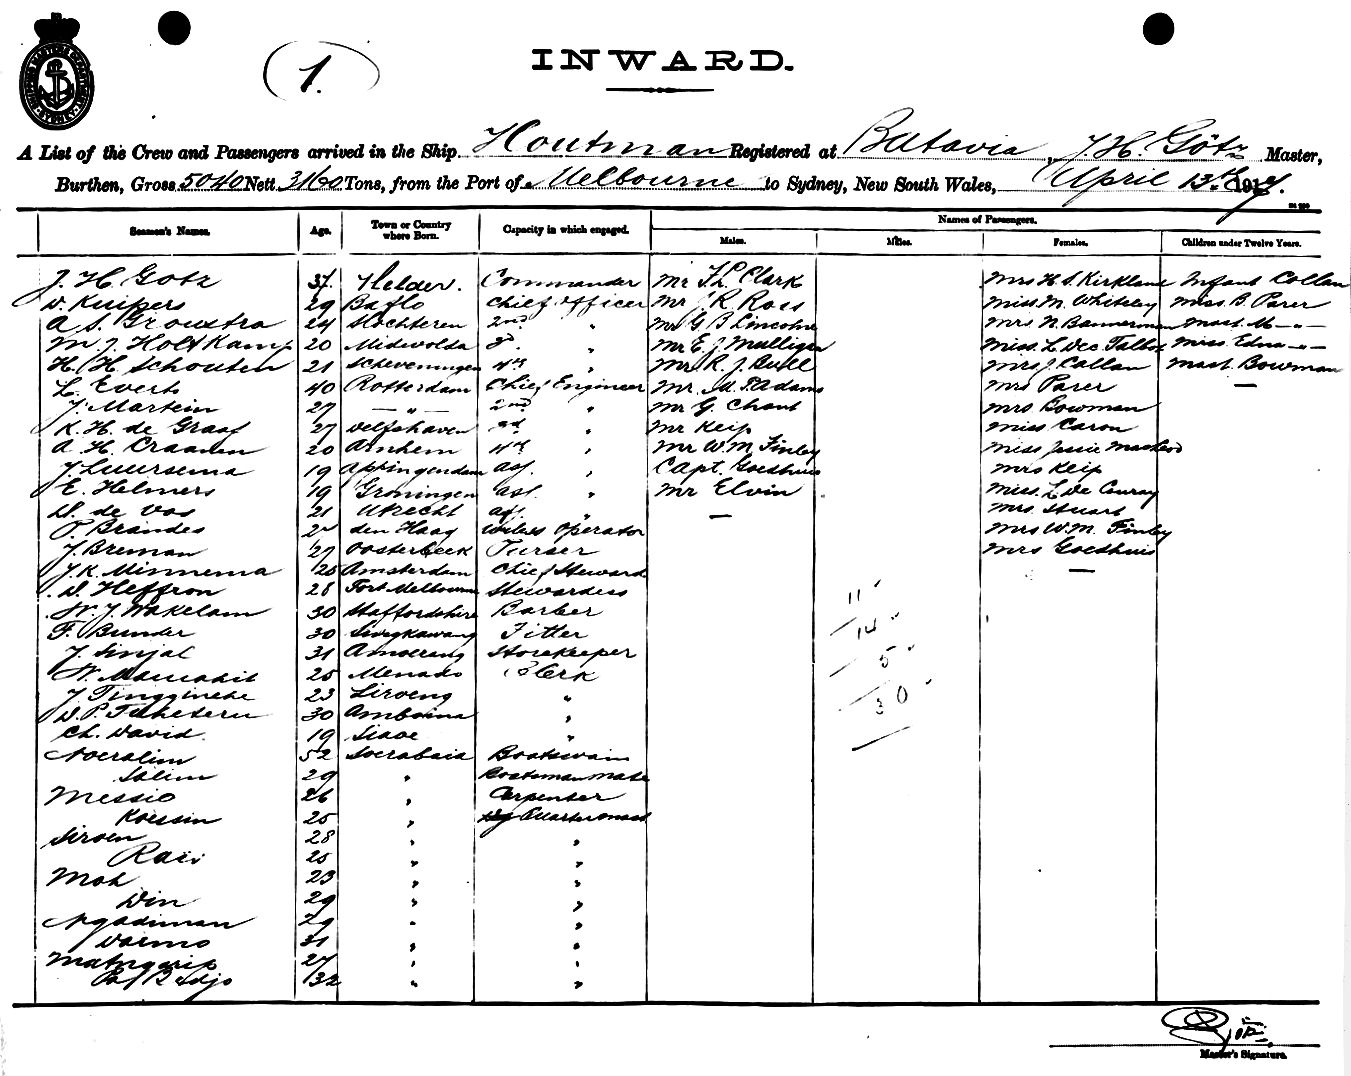 1.
INWARD.
A List of the Crew and Passengers arrived in the Ship Houtman Registered at Batavia, J. H. Götz Master,
Burthen, Gross 5040 Nett 3160 Tons, from the Port of Melbourne to Sydney, New South Wales, April 13th 1917.
Seamen's Names. Age. Town or Country where Born. Capacity in which engaged. Names of Passengers.
Males. Males. Females. Children under Twelve Years.
J. H. Gotz 37 Helder. Commander Mr F. L. Clark Mrs H. S. Kirkland Infant Collan
D. Kuipers 29 Baflo Chief Officer Mr J R Ross Miss M. Whiteley Miss B. Parer
A S. Groustra 24 Slochteren 2nd " Mr G B Lincolne Mrs N. Bannerman Mast. M - " -
M. J. Holtkamp 20 Midwolda 3 " Mr E. J. Mulligan Miss. L. Dec Talbot Miss Edna - " -
H. H. Schouten 21 Scheveningen 4th " Mr R. J. Mrs J Callan Mast. Bowman
L. Everts 40 Rotterdam Chief Engineer Mr. M. S. Adams Mrs Parer —
J. Martein 27 — " — 2nd " Mr G. Chant Mrs Bowman
K. H. de Graaf 27 Delfshaven 3d " Mr Keip Miss Caron
A. H. Craanen 20 Arnhem 4th " Mr W. M. Finley Miss Jessie Macleod
J. Luursema 19 Appingendam ass. " Capt. Goedhuis Mrs Keip
E. Helmers 19 Groningen ass. " Mr Elvin Miss. L. De Couray
D. de Vos 21 Utrecht ass. " — Mrs. Stuart
P. Brandes 27 den Haag Wireless Operator Mrs W. M. Finley
J. Breman 27 Oosterbeek Purser Mrs Goedhuis
J. K. Minnema 28 Amsterdam Chief Steward —
D. Heffron 28 Port Melbourne Stewardess 11 "
W. J. Wakelam 30 Staffordshire Barber 14 "
F. Bunder 30 Fitter 5 "
J. Sinjal 31 Amoerang Storekeeper 30 "
W. Mamahit 25 Menado Clerk
J. Tingginehe 23 Liroeng "
D. P. Tuheteru 30 Amboina "
Ch. David. 19 Siaoe "
Noeralim 52 Soerabaia Boatswain
Salim 29 " Boatsman mate
Messio 26 " Carpenter
Koessin 25 " Quartermast
Siroen 28 " "
Rais 25 " "
Moh 23 " "
Din 29 " "
Ngadiman 29 " "
Darmo 31 " "
Matngarip 27 " "
Redjo 32 " "
Götz
Master's Signature.